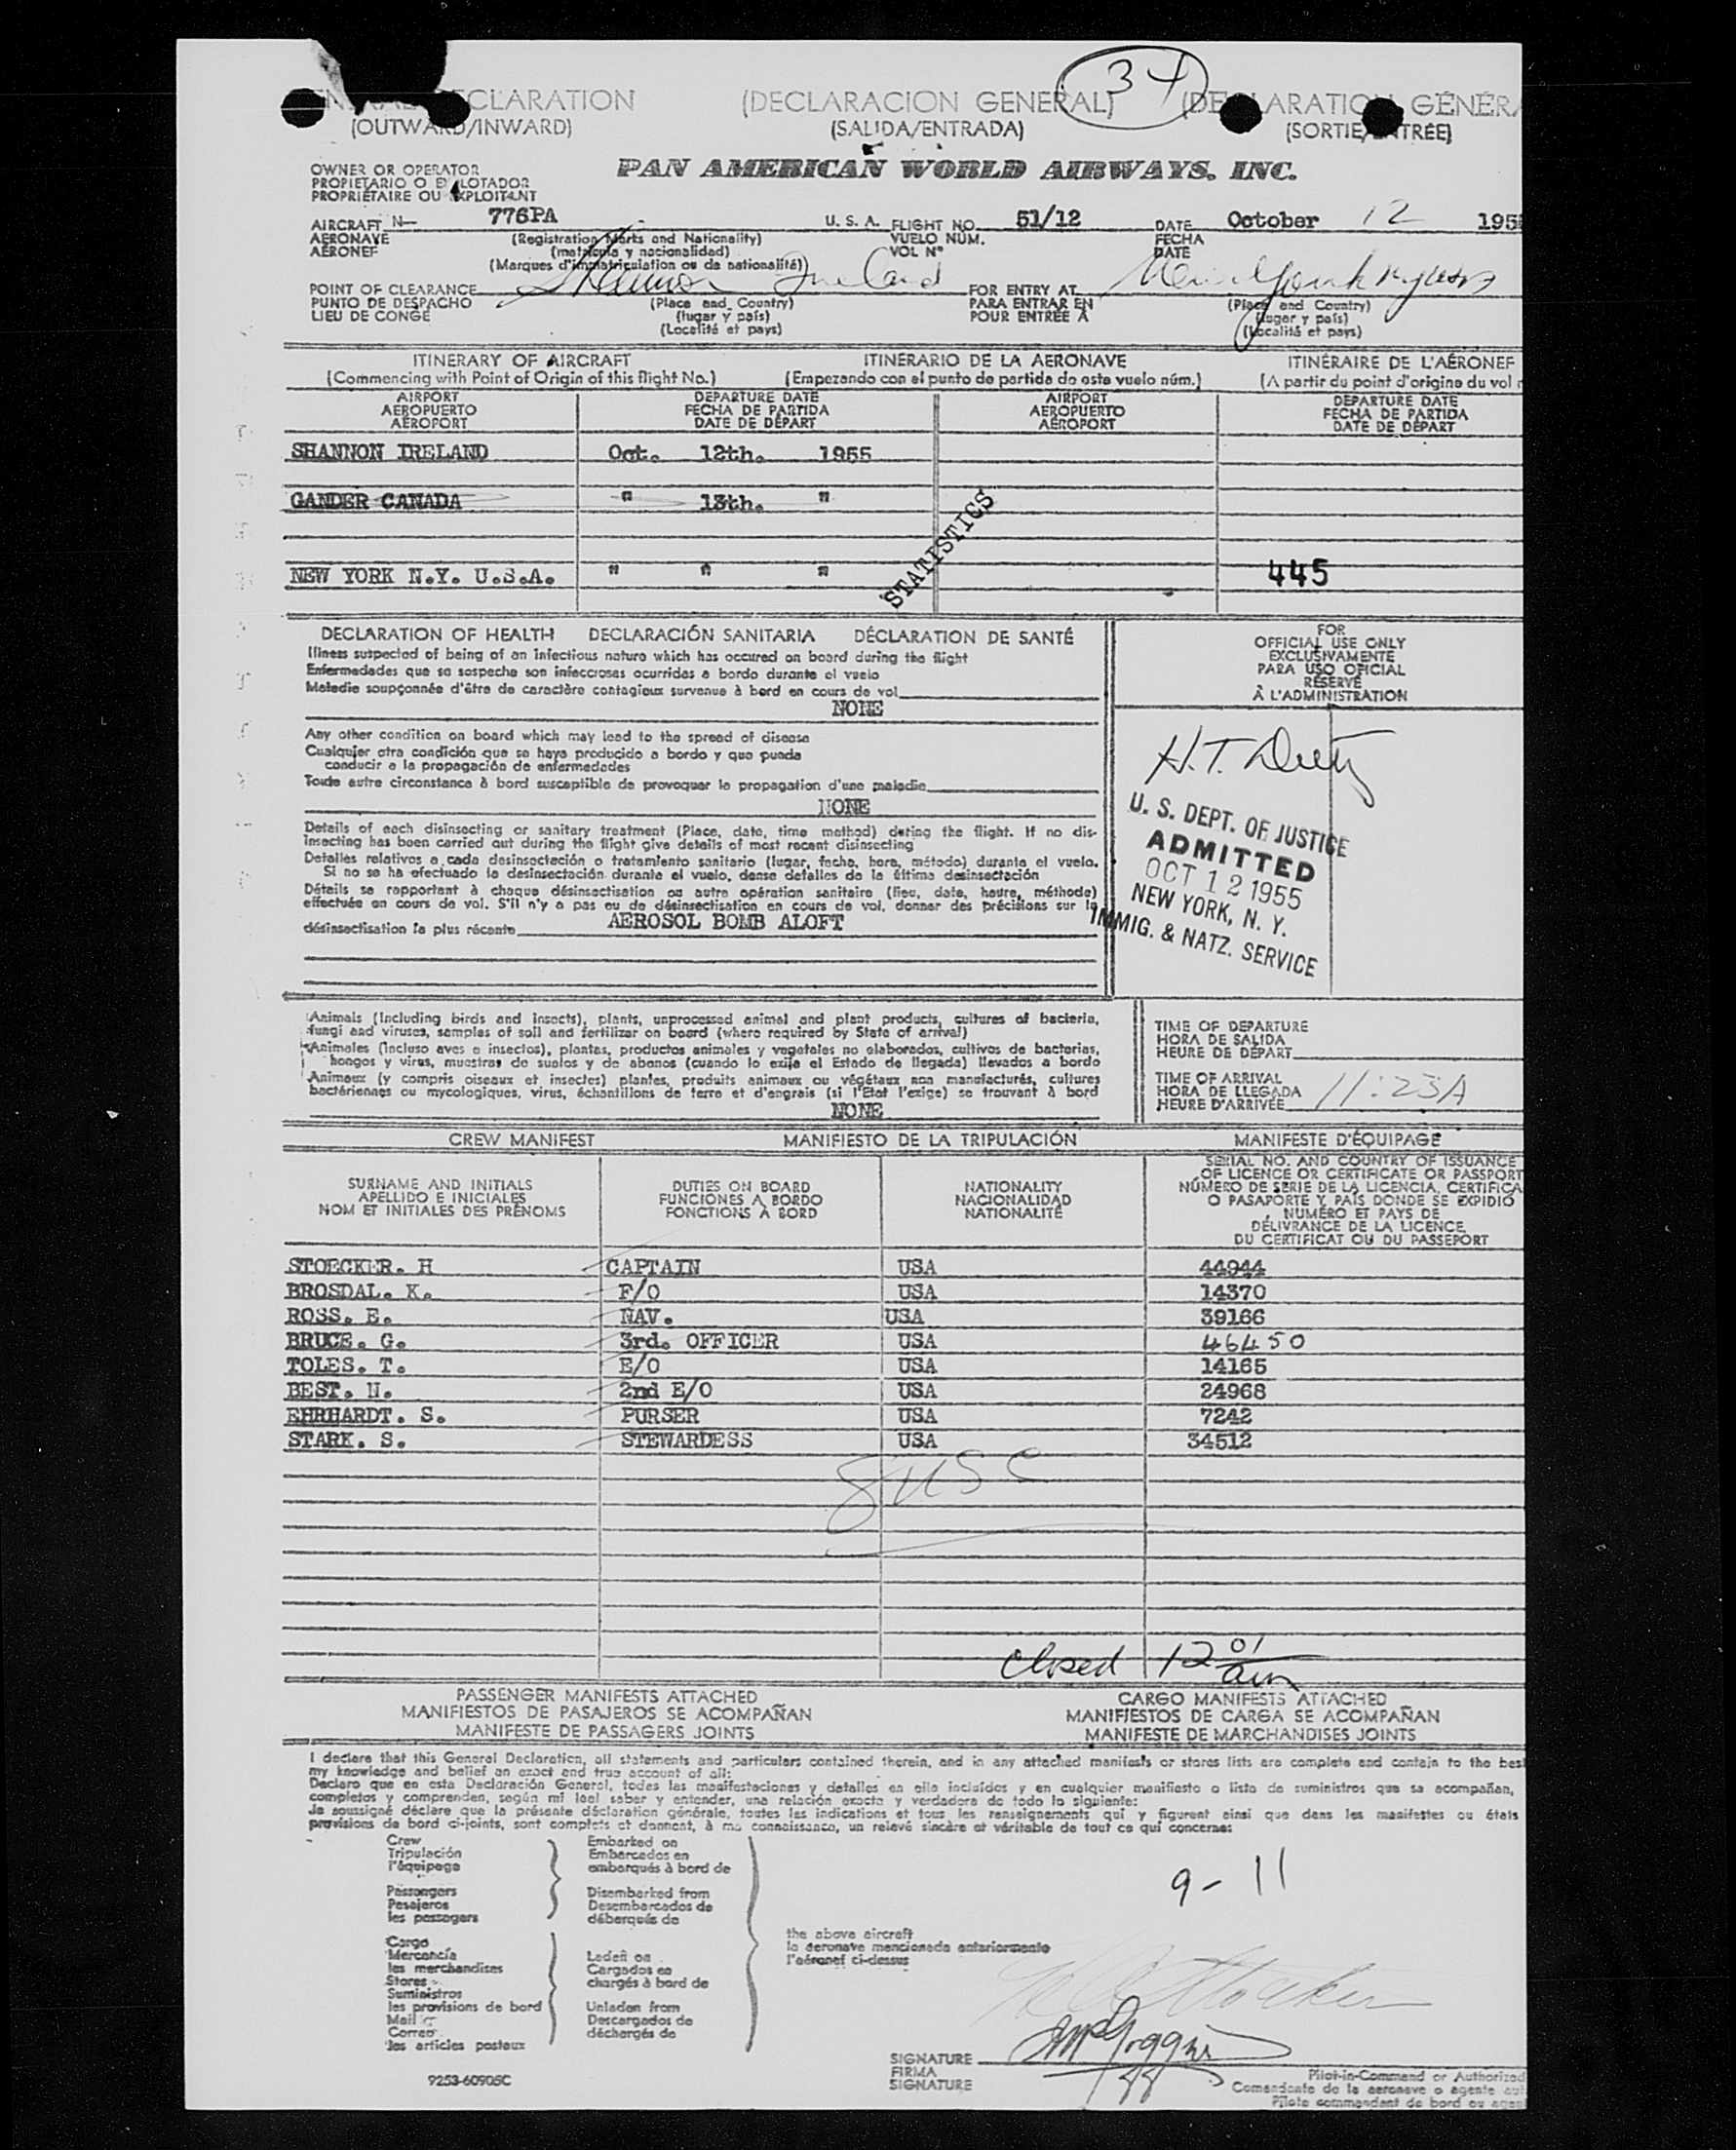 34
CLARATION (DECLARACION GENERAL) ARATIO GÉNÉR
(OUTWARD/INWARD) (SALIDA/ENTRADA) (SORTIE/ TRÉE)
OWNER OR OPERATOR
PROPIETARIO O EX LOTADOR
PROPRIÉTAIRE OU EXPLOITANT
PAN AMERICAN WORLD AIRWAYS, INC.
AIRCRAFT N— 776PA U. S. A. FLIGHT NO. 51/12 DATE October 12 195
AERONAVE (Registration Marks and Nationality) VUELO NÚM. FECHA
AÉRONEF (matrícula y nacionalidad) VOL N° DATE
(Marques d'immatriculation ou de nationalité)
POINT OF CLEARANCE Shannon Ireland FOR ENTRY AT New York
PUNTO DE DESPACHO (Place and Country) PARA ENTRAR EN (Place and Country)
LIEU DE CONGÉ (lugar y país) POUR ENTRÉE À (lugar y país)
(Localité et pays) (Localité et pays)
ITINERARY OF AIRCRAFT ITINERARIO DE LA AERONAVE ITINÉRAIRE DE L'AÉRONEF
(Commencing with Point of Origin of this flight No.) (Empezando con el punto de partida de este vuelo núm.) (A partir du point d'origine du vol
AIRPORT DEPARTURE DATE AIRPORT DEPARTURE DATE
AEROPUERTO FECHA DE PARTIDA AEROPUERTO FECHA DE PARTIDA
AÉROPORT DATE DE DÉPART AÉROPORT DATE DE DÉPART
SHANNON IRELAND Oct. 12th. 1955
GANDER CANADA " 13th. "
STATISTICS
NEW YORK N.Y. U.S.A. " " " 445
DECLARATION OF HEALTH DECLARACIÓN SANITARIA DÉCLARATION DE SANTÉ
Illness suspected of being of an infectious nature which has occured on board during the flight
Enfermedades que se sospeche son infecciosas ocurridas a bordo durante el vuelo
Maladie soupçonnée d'être de caractère contagieux survenue à bord en cours de vol
NONE
Any other condition on board which may lead to the spread of disease
Cualquier otra condición que se haya producido a bordo y que pueda
conducir a la propagación de enfermedades
Toute autre circonstance à bord susceptible de provoquer la propagation d'une maladie
NONE
Details of each disinsecting or sanitary treatment (Place, date, time method) during the flight. If no dis-
insecting has been carried out during the flight give details of most recent disinsecting
Detalles relativos a cada desinsectación o tratamiento sanitario (lugar, fecha, hora, método) durante el vuelo.
Si no se ha efectuado la desinsectación durante el vuelo, dense detalles de la última desinsectación
Détails se rapportant à chaque désinsectisation ou autre opération sanitaire (lieu, date, heure, méthode)
effectuée en cours de vol. S'il n'y a pas eu de désinsectisation en cours de vol, donner des précisions sur la
désinsectisation la plus récente AEROSOL BOMB ALOFT
FOR
OFFICIAL USE ONLY
EXCLUSIVAMENTE
PARA USO OFICIAL
RÉSERVÉ
À L'ADMINISTRATION
H.T.
U. S. DEPT. OF JUSTICE
ADMITTED
OCT 12 1955
NEW YORK, N. Y.
IMMIG. & NATZ. SERVICE
Animals (Including birds and insects), plants, unprocessed animal and plant products, cultures of bacteria,
fungi and viruses, samples of soil and fertilizer on board (where required by State of arrival)
Animales (Incluso aves e insectos), plantas, productos animales y vegetales no elaborados, cultivos de bacterias,
hongos y virus, muestras de suelos y de abonos (cuando lo exija el Estado de llegada) llevados a bordo
Animaux (y compris oiseaux et insectes) plantes, produits animaux ou végétaux non manufacturés, cultures
bactériennes ou mycologiques, virus, échantillons de terre et d'engrais (si l'Etat l'exige) se trouvant à bord
NONE
TIME OF DEPARTURE
HORA DE SALIDA
HEURE DE DÉPART
TIME OF ARRIVAL
HORA DE LLEGADA
HEURE D'ARRIVÉE 11:23A
CREW MANIFEST MANIFIESTO DE LA TRIPULACIÓN MANIFESTE D'ÉQUIPAGE
SURNAME AND INITIALS
APELLIDO E INICIALES
NOM ET INITIALES DES PRÉNOMS
DUTIES ON BOARD
FUNCIONES A BORDO
FONCTIONS À BORD
NATIONALITY
NACIONALIDAD
NATIONALITÉ
SERIAL NO. AND COUNTRY OF ISSUANCE
OF LICENCE OR CERTIFICATE OR PASSPORT
NÚMERO DE SERIE DE LA LICENCIA, CERTIFICA
O PASAPORTE Y PAÍS DONDE SE EXPIDIÓ
NUMÉRO ET PAYS DE
DÉLIVRANCE DE LA LICENCE,
DU CERTIFICAT OU DU PASSEPORT
STOECKER. H CAPTAIN USA 44944
BROSDAL. K. F/O USA 14370
ROSS. E. NAV. USA 39166
BRUCE. G. 3rd. OFFICER USA 46450
TOLES. T. E/O USA 14165
BEST. N. 2nd E/O USA 24968
EHRHARDT. S. PURSER USA 7242
STARK. S. STEWARDESS USA 34512
8 USC
Closed 12 01 am
PASSENGER MANIFESTS ATTACHED CARGO MANIFESTS ATTACHED
MANIFIESTOS DE PASAJEROS SE ACOMPAÑAN MANIFIESTOS DE CARGA SE ACOMPAÑAN
MANIFESTE DE PASSAGERS JOINTS MANIFESTE DE MARCHANDISES JOINTS
I declare that this General Declaration, all statements and particulars contained therein, and in any attached manifests or stores lists are complete and contain to the best
my knowledge and belief an exact and true account of all:
Declaro que en esta Declaración General, todas las manifestaciones y detalles en ella incluídos y en cualquier manifiesto o lista de suministros que se acompañan,
completos y comprenden, según mi leal saber y entender, una relación exacta y verdadera de todo lo siguiente:
Je soussigné déclare que la présente déclaration générale, toutes les indications et tous les renseignements qui y figurent ainsi que dans les manifestes ou états
provisions de bord ci-joints, sont complets et donnent, à ma connaissance, un relevé sincère et véritable de tout ce qui concerne:
Crew Embarked on
Tripulación Embarcados en
l'équipage embarqués à bord de
Passengers Disembarked from
Pasajeros Desembarcados de
les passagers débarqués de
9-11
the above aircraft
la aeronave mencionada anteriormente
l'aéronef ci-dessus
Cargo
Mercancía Laden on
les merchandises Cargados en
Stores chargés à bord de
Suministros
les provisions de bord Unladen from
Mail Descargados de
Correo déchargés de
les articles postaux
SIGNATURE
FIRMA
SIGNATURE
Pilot-in-Command or Authorized
Comandante de la aeronave o agente aut
Pilote commandant de bord ou agen
9253-60905C